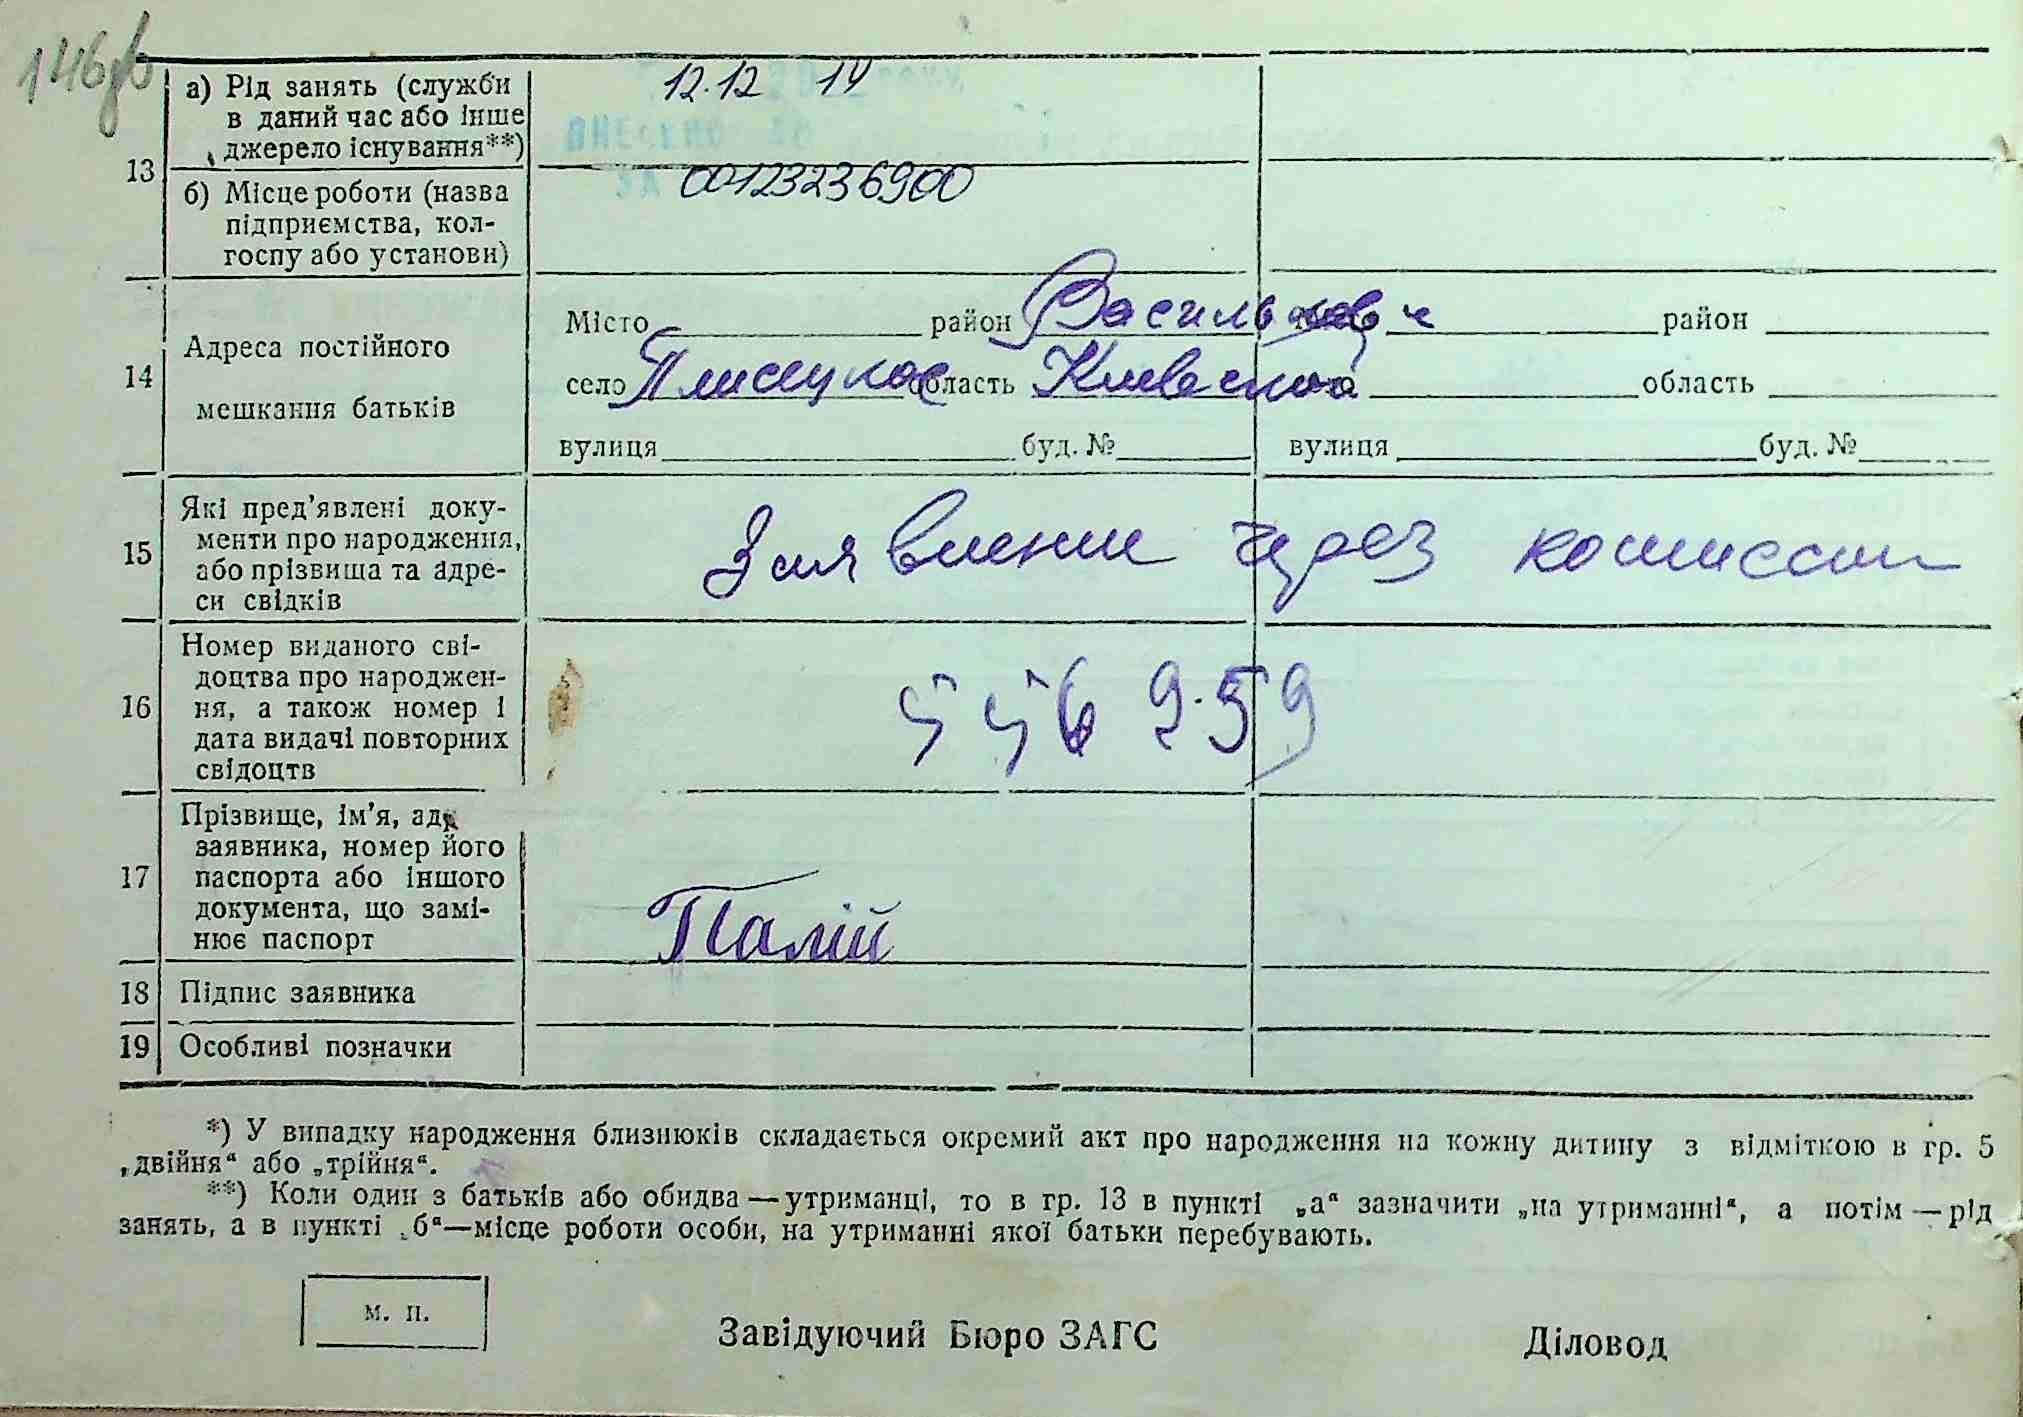 146
а) Рід занять (служби
в даний час або інше
джерело існування**)
12.12 14
13
б) Місце роботи (назва
підприємства, кол-
госпу або установи)
00123236900
14
Адреса постійного
мешкання батьків
Місто район Васильков район
село Плисецкое область Киевской область
вулиця буд. № вулиця буд. №
15
Які пред’явлені доку-
менти про народження,
або прізвища та адре-
си свідків
Заявление через комиссии
16
Номер виданого сві-
доцтва про народжен-
ня, а також номер і
дата видачі повторних
свідоцтв
556 9.59
17
Прізвище, ім’я, адр
заявника, номер його
паспорта або іншого
документа, що замі-
нює паспорт
Палій
18 Підпис заявника
19 Особливі позначки
*) У випадку народження близнюків складається окремий акт про народження на кожну дитину з відміткою в гр. 5
„двійня“ або „трійня“.
**) Коли один з батьків або обидва — утриманці, то в гр. 13 в пункті „а“ зазначити „на утриманні“, а потім — рід
занять, а в пункті „б“—місце роботи особи, на утриманні якої батьки перебувають.
м. п.
Завідуючий Бюро ЗАГС Діловод